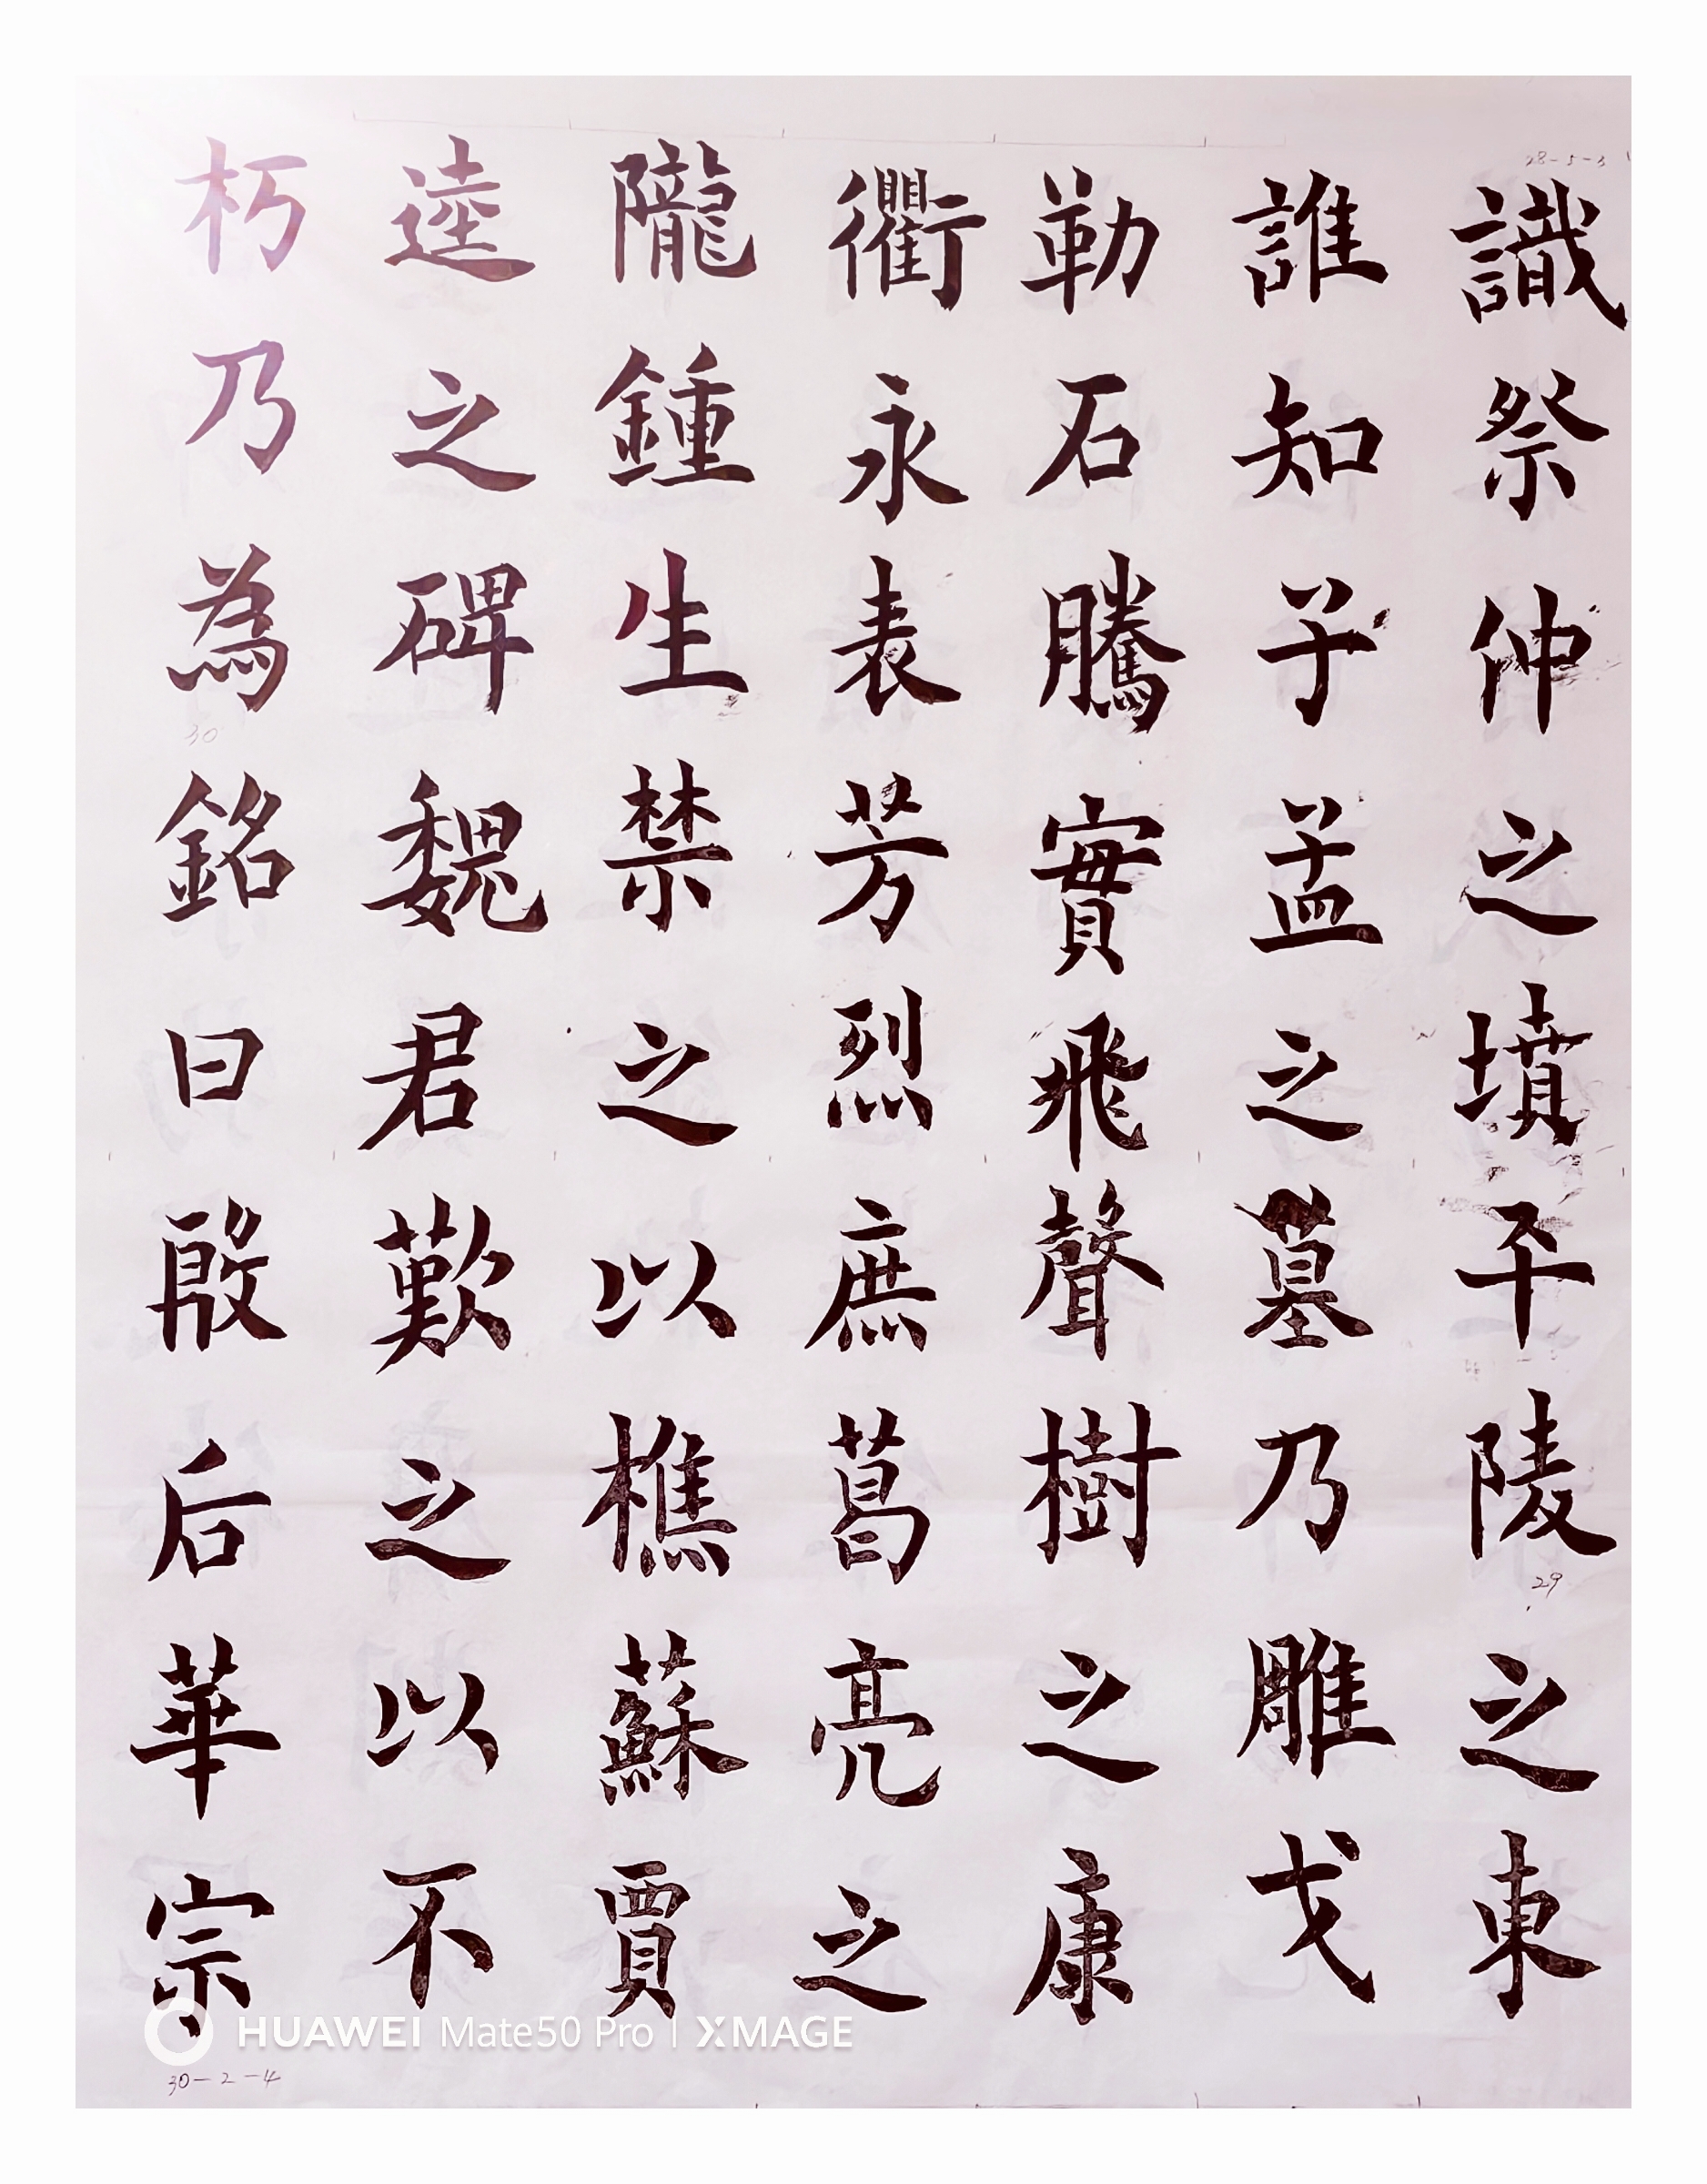 28-5-3
識祭仲之墳平陵之東
29
誰知子孟之墓乃雕戈
勒石騰實飛聲樹之康
衢永表芳烈庶葛亮之
隴鍾生禁之以樵蘇賈
逵之碑魏君歎之以不
朽乃為銘曰殷后華宗
30
30-2-4
HUAWEI Mate50 Pro | XMAGE